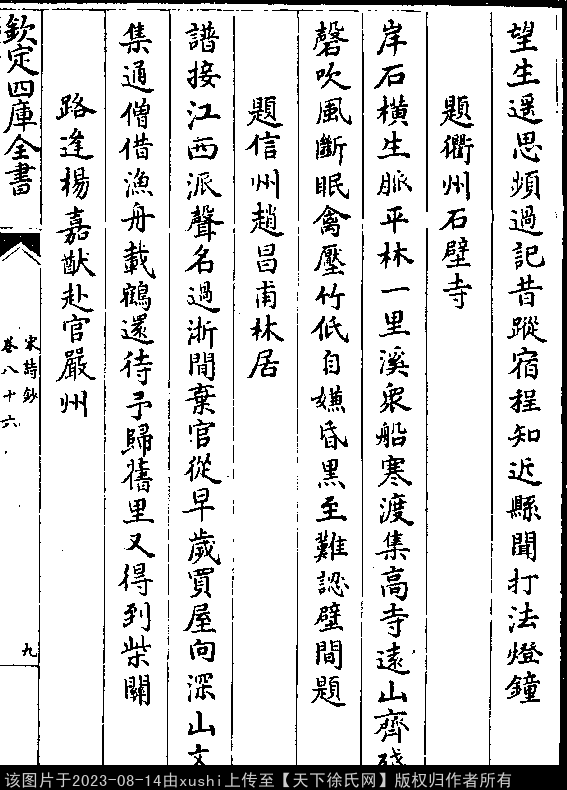 望生遥思頻過記昔蹤宿程知近縣聞打法燈鐘
題衢州石壁寺
岸石橫生脈平林一里溪衆船寒渡集高寺遠山齊殘
磬吹風斷眠禽壓竹低自嫌昏黑至難認壁間題
題信州趙昌甫林居
譜接江西派聲名過浙間棄官從早歲買屋向深山文
集通僧借漁舟載鶴還待予歸舊里又得到柴關
路逢楊嘉猷赴官嚴州
欽定四庫全書
宋詩鈔
卷八十六
九
该图片于2023-08-14由xushi上传至【天下徐氏网】版权归作者所有